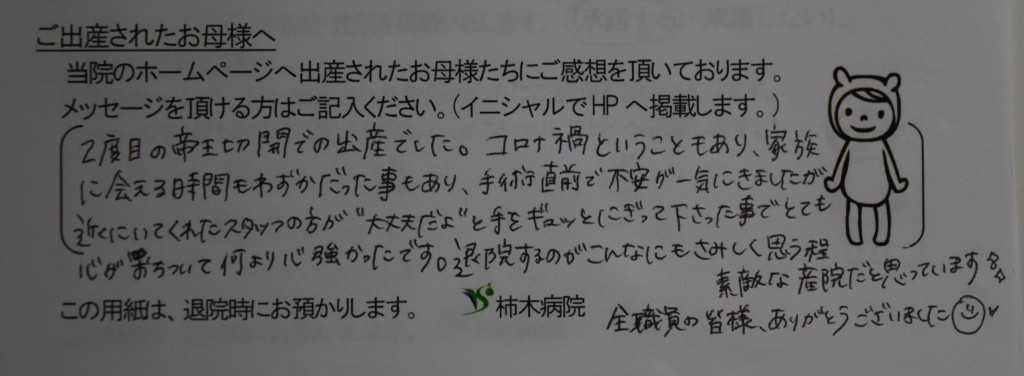 ご出産されたお母様へ
当院のホームページへ出産されたお母様たちにご感想を頂いております。
メッセージを頂ける方はご記入ください。(イニシャルでHPへ掲載します。)
2度目の帝王切開での出産でした。コロナ禍ということもあり、家族
に会える時間もわずかだった事もあり、手術直前で不安が一気にきましたが
近くにいてくれたスタッフの方が"大丈夫だよ"と手をギュッとにぎって下さった事でとても
心が落ちついて何より心強かったです。退院するのがこんなにもさみしく思う程
素敵な産院だと思っています
この用紙は、退院時にお預かりします。
柿木病院
全職員の皆様、ありがとうございました